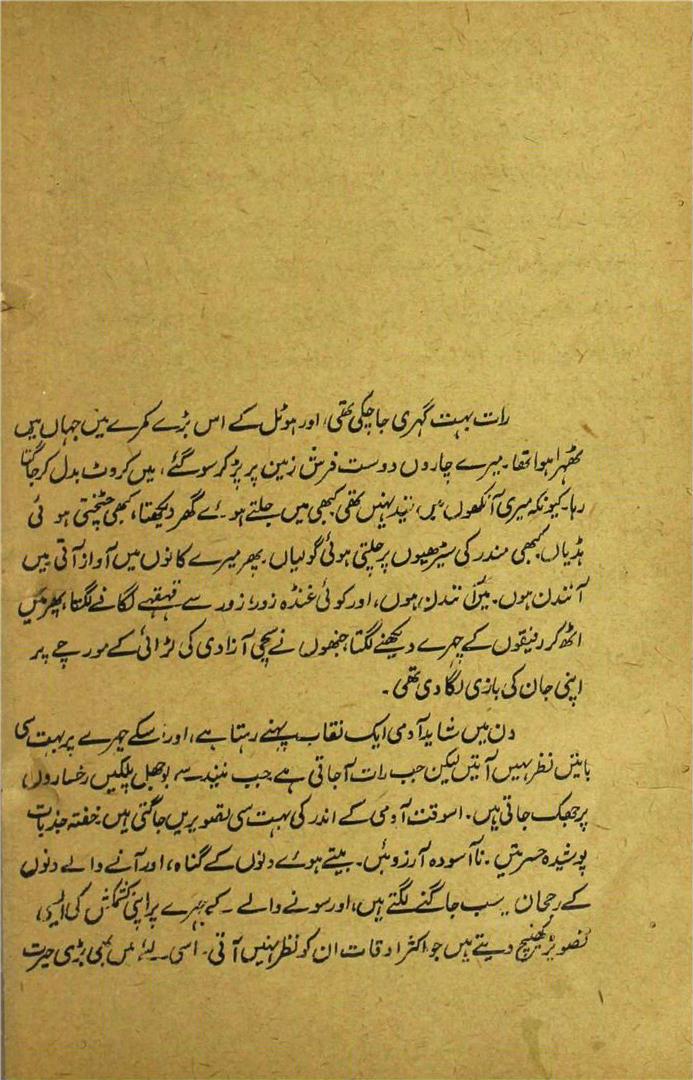 رات بہت گہری جاچکی تھی، اور ہوٹل کے اس بڑے کمرے میں جہاں میں
ٹھہرا ہوا تھا۔ میرے چاروں دوست فرش زمین پر پڑ کر سوگئے، میں کروٹ بدل کر جاگتا
رہا۔ کیونکہ میری آنکھوں میں نیند نہیں تھی کبھی میں جلتے ہوئے گھر دیکھتا، کبھی چٹختی ہوئی
ہڈیاں کبھی مندر کی سیڑھیوں پر چلتی ہوئی گولیاں۔ پھر میرے کانوں میں آواز آتی میں
آنندن ہوں۔ میں نندن ہوں، اور کوئی غنڈہ زور زور سے قہقہے لگانے لگتا، پھر میں
اٹھ کر رفیقوں کے چہرے دیکھنے لگتا، جنھوں نے سچی آزادی کی لڑائی کے مورچے پر
اپنی جان کی بازی لگا دی تھی۔
دن میں شاید آدمی ایک نقاب پہنے رہتا ہے، اور اسکے چہرے پر بہت سی
باتیں نظر نہیں آتیں لیکن جب رات آجاتی ہے جب نیند سے بوجھل پلکیں رخساروں
پر جھک جاتی ہیں۔ اسوقت آدمی کے اندر کی بہت سی تصویریں جاگتی ہیں، خفتہ جذبات
پوشیدہ حسرتیں۔ ناآسودہ آرزوئیں۔ بیتے ہوئے دنوں کے گناہ، اور آنے والے دنوں
کے رجحان یہ سب جاگنے لگتے ہیں، اور سونے والے کے چہرے پر اپنی کشمکش کی ایسی
تصویر کھینچ دیتے ہیں جو اکثر اوقات ان کو نظر نہیں آتی۔ اسی لئے میں بھی بڑی حیرت